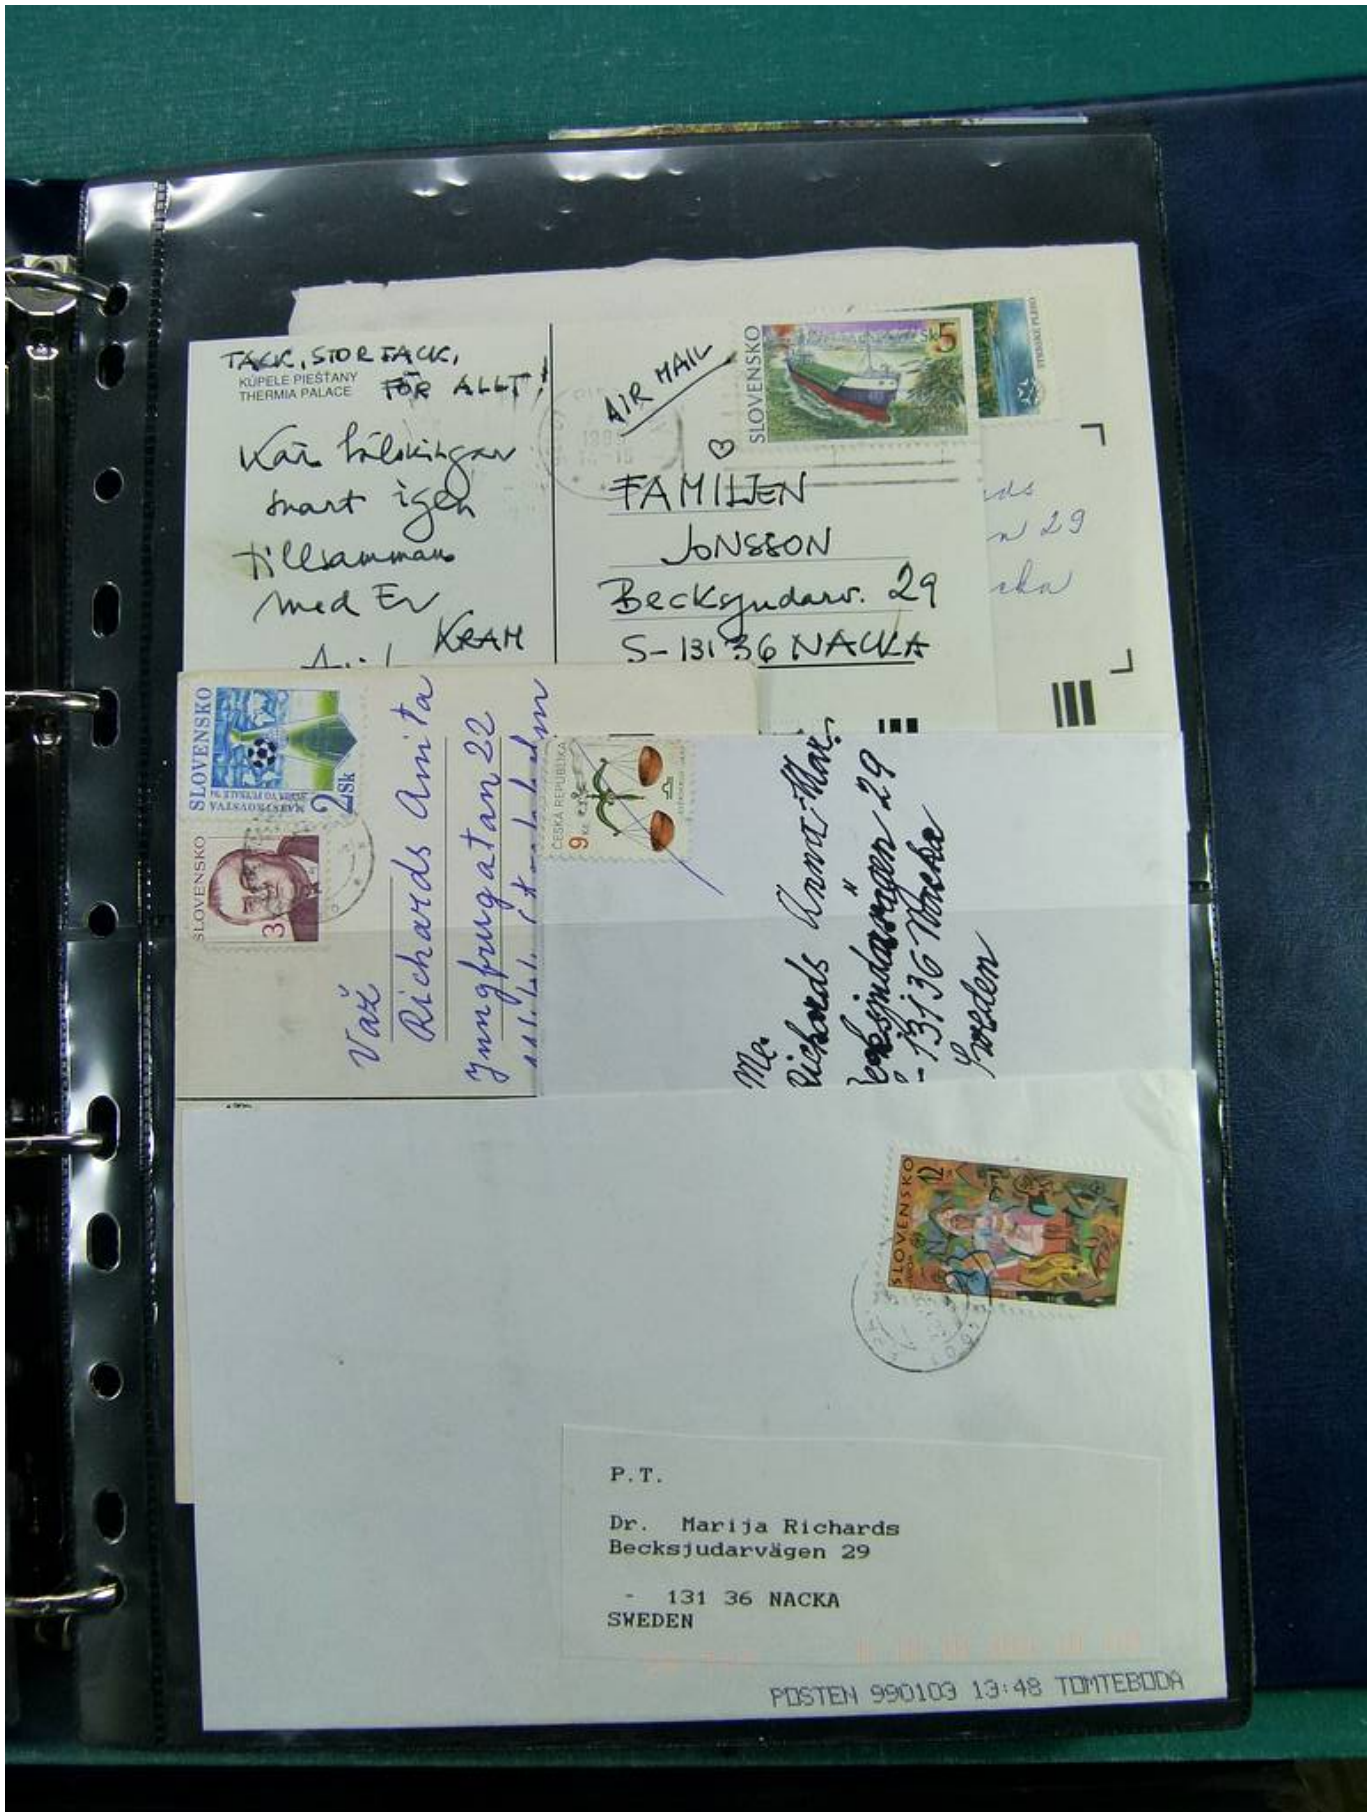 TACK, STOR TACK,
KÚPELE PIEŠŤANY
THERMIA PALACE
FÖR ALLT!
Kära hälsningar
snart igen
tillsammans
med Er
KRAM
AIR MAIL
SLOVENSKO
Sk 5
FAMILJEN
JONSSON
Becksjudarv. 29
S-131 36 NACKA
29
SLOVENSKO
2 Sk
SLOVENSKO
3
Váž
Richards Anita
Jungfrugatan 22
ČESKÁ REPUBLIKA
9 Kč
Richards Anna-Mar.
29
131 36 Nacka
Sweden
SLOVENSKO
12
P.T.
Dr. Marija Richards
Becksjudarvägen 29
- 131 36 NACKA
SWEDEN
POSTEN 990103 13:48 TOMTEBODA